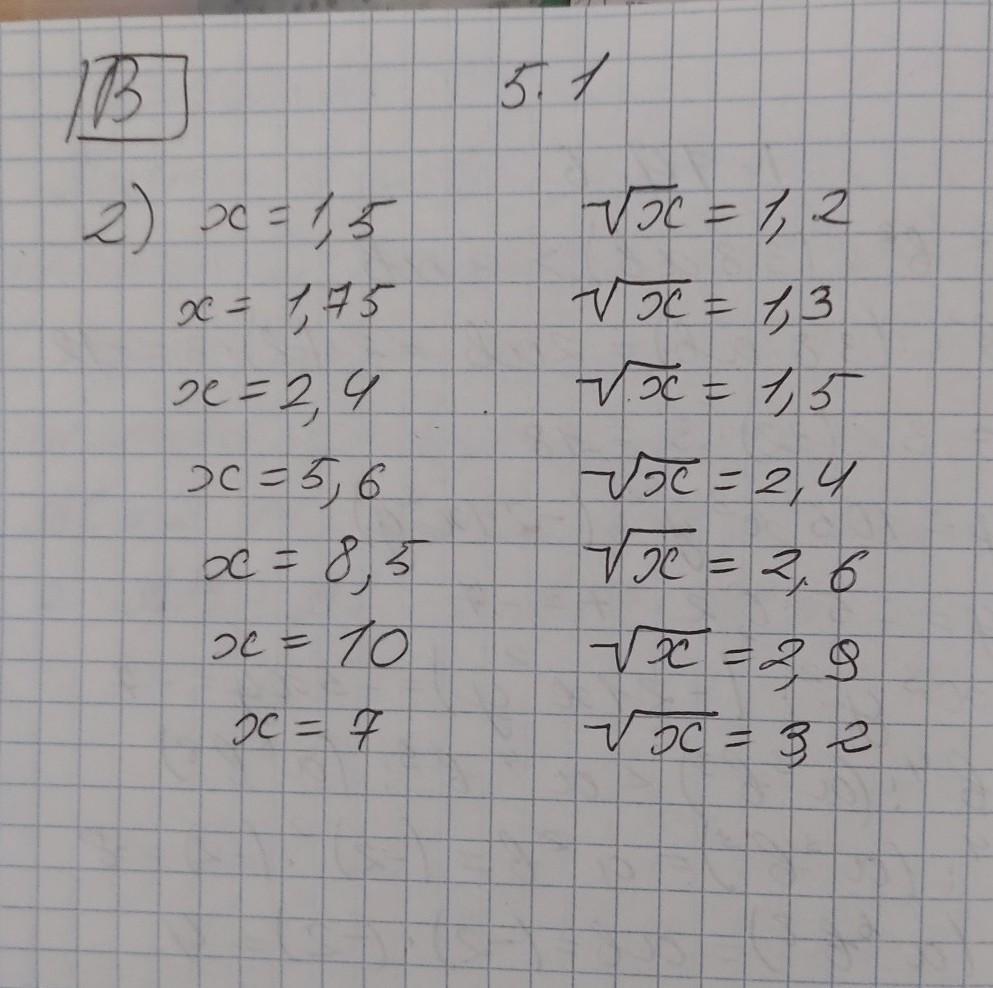 В 5.1
2) x = 1,5 √x = 1,2
x = 1,75 √x = 1,3
x = 2,4 √x = 1,5
x = 5,6 √x = 2,4
x = 8,5 √x = 2,6
x = 10 √x = 2,9
x = 7 √x = 3,2